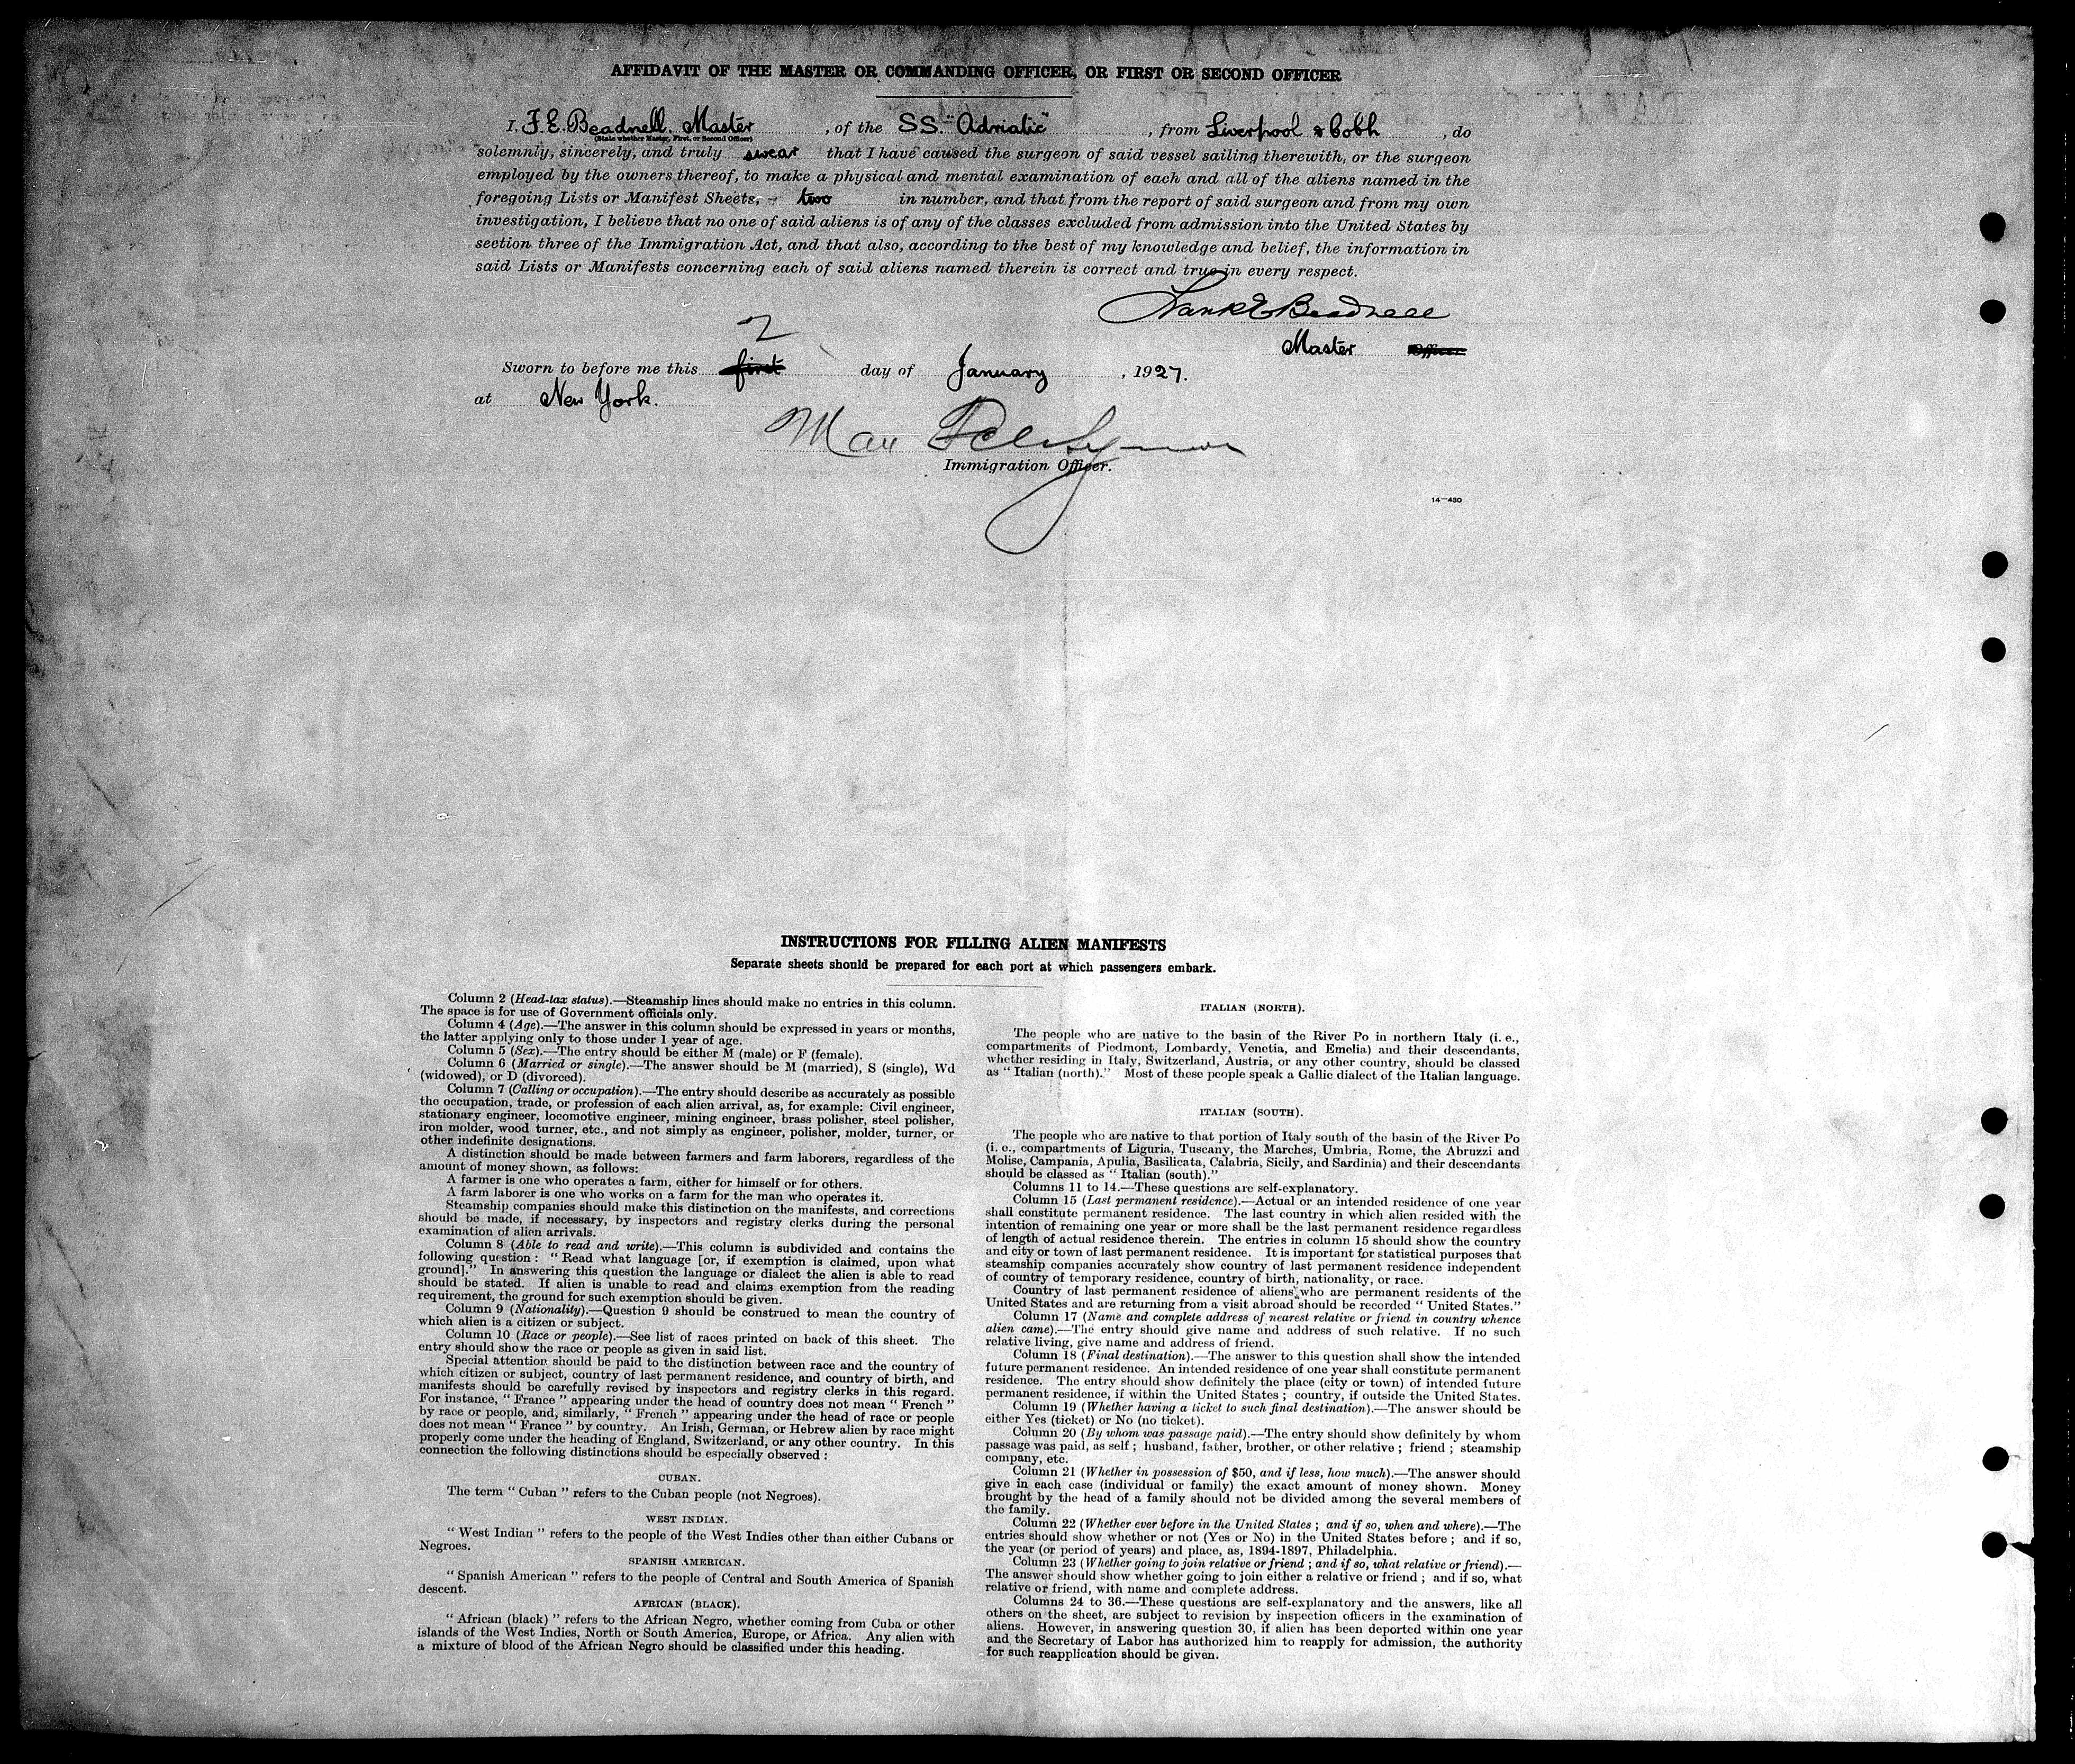 AFFIDAVIT OF THE MASTER OR COMMANDING OFFICER, OR FIRST OR SECOND OFFICER
I, F. E. Beadnell. Master, of the SS. "Adriatic", from Liverpool & Cobh, do
(State whether Master, First, or Second Officer)
solemnly, sincerely, and truly swear that I have caused the surgeon of said vessel sailing therewith, or the surgeon
employed by the owners thereof, to make a physical and mental examination of each and all of the aliens named in the
foregoing Lists or Manifest Sheets, two in number, and that from the report of said surgeon and from my own
investigation, I believe that no one of said aliens is of any of the classes excluded from admission into the United States by
section three of the Immigration Act, and that also, according to the best of my knowledge and belief, the information in
said Lists or Manifests concerning each of said aliens named therein is correct and true in every respect.
Frank E Beadnell
Master Officer
2
Sworn to before me this first day of January, 1927.
at New York.
Max
Immigration Officer.
14—430
INSTRUCTIONS FOR FILLING ALIEN MANIFESTS
Separate sheets should be prepared for each port at which passengers embark.
Column 2 (Head-tax status).—Steamship lines should make no entries in this column.
The space is for use of Government officials only.
Column 4 (Age).—The answer in this column should be expressed in years or months,
the latter applying only to those under 1 year of age.
Column 5 (Sex).—The entry should be either M (male) or F (female).
Column 6 (Married or single).—The answer should be M (married), S (single), Wd
(widowed), or D (divorced).
Column 7 (Calling or occupation).—The entry should describe as accurately as possible
the occupation, trade, or profession of each alien arrival, as, for example: Civil engineer,
stationary engineer, locomotive engineer, mining engineer, brass polisher, steel polisher,
iron molder, wood turner, etc., and not simply as engineer, polisher, molder, turner, or
other indefinite designations.
A distinction should be made between farmers and farm laborers, regardless of the
amount of money shown, as follows:
A farmer is one who operates a farm, either for himself or for others.
A farm laborer is one who works on a farm for the man who operates it.
Steamship companies should make this distinction on the manifests, and corrections
should be made, if necessary, by inspectors and registry clerks during the personal
examination of alien arrivals.
Column 8 (Able to read and write).—This column is subdivided and contains the
following question : " Read what language [or, if exemption is claimed, upon what
ground]." In answering this question the language or dialect the alien is able to read
should be stated. If alien is unable to read and claims exemption from the reading
requirement, the ground for such exemption should be given.
Column 9 (Nationality).—Question 9 should be construed to mean the country of
which alien is a citizen or subject.
Column 10 (Race or people).—See list of races printed on back of this sheet. The
entry should show the race or people as given in said list.
Special attention should be paid to the distinction between race and the country of
which citizen or subject, country of last permanent residence, and country of birth, and
manifests should be carefully revised by inspectors and registry clerks in this regard.
For instance, " France " appearing under the head of country does not mean " French "
by race or people, and, similarly, " French " appearing under the head of race or people
does not mean " France " by country. An Irish, German, or Hebrew alien by race might
properly come under the heading of England, Switzerland, or any other country. In this
connection the following distinctions should be especially observed :
CUBAN.
The term " Cuban " refers to the Cuban people (not Negroes).
WEST INDIAN.
" West Indian " refers to the people of the West Indies other than either Cubans or
Negroes.
SPANISH AMERICAN.
" Spanish American " refers to the people of Central and South America of Spanish
descent.
AFRICAN (BLACK).
" African (black) " refers to the African Negro, whether coming from Cuba or other
islands of the West Indies, North or South America, Europe, or Africa. Any alien with
a mixture of blood of the African Negro should be classified under this heading.
ITALIAN (NORTH).
The people who are native to the basin of the River Po in northern Italy (i. e.,
compartments of Piedmont, Lombardy, Venetia, and Emelia) and their descendants,
whether residing in Italy, Switzerland, Austria, or any other country, should be classed
as " Italian (north)." Most of these people speak a Gallic dialect of the Italian language.
ITALIAN (SOUTH).
The people who are native to that portion of Italy south of the basin of the River Po
(i. e., compartments of Liguria, Tuscany, the Marches, Umbria, Rome, the Abruzzi and
Molise, Campania, Apulia, Basilicata, Calabria, Sicily, and Sardinia) and their descendants
should be classed as " Italian (south)."
Columns 11 to 14.—These questions are self-explanatory.
Column 15 (Last permanent residence).—Actual or an intended residence of one year
shall constitute permanent residence. The last country in which alien resided with the
intention of remaining one year or more shall be the last permanent residence regardless
of length of actual residence therein. The entries in column 15 should show the country
and city or town of last permanent residence. It is important for statistical purposes that
steamship companies accurately show country of last permanent residence independent
of country of temporary residence, country of birth, nationality, or race.
Country of last permanent residence of aliens who are permanent residents of the
United States and are returning from a visit abroad should be recorded " United States."
Column 17 (Name and complete address of nearest relative or friend in country whence
alien came).—The entry should give name and address of such relative. If no such
relative living, give name and address of friend.
Column 18 (Final destination).—The answer to this question shall show the intended
future permanent residence. An intended residence of one year shall constitute permanent
residence. The entry should show definitely the place (city or town) of intended future
permanent residence, if within the United States ; country, if outside the United States.
Column 19 (Whether having a ticket to such final destination).—The answer should be
either Yes (ticket) or No (no ticket).
Column 20 (By whom was passage paid).—The entry should show definitely by whom
passage was paid, as self ; husband, father, brother, or other relative ; friend ; steamship
company, etc.
Column 21 (Whether in possession of $50, and if less, how much).—The answer should
give in each case (individual or family) the exact amount of money shown. Money
brought by the head of a family should not be divided among the several members of
the family.
Column 22 (Whether ever before in the United States ; and if so, when and where).—The
entries should show whether or not (Yes or No) in the United States before ; and if so,
the year (or period of years) and place, as, 1894-1897, Philadelphia.
Column 23 (Whether going to join relative or friend ; and if so, what relative or friend).—
The answer should show whether going to join either a relative or friend ; and if so, what
relative or friend, with name and complete address.
Columns 24 to 36.—These questions are self-explanatory and the answers, like all
others on the sheet, are subject to revision by inspection officers in the examination of
aliens. However, in answering question 30, if alien has been deported within one year
and the Secretary of Labor has authorized him to reapply for admission, the authority
for such reapplication should be given.